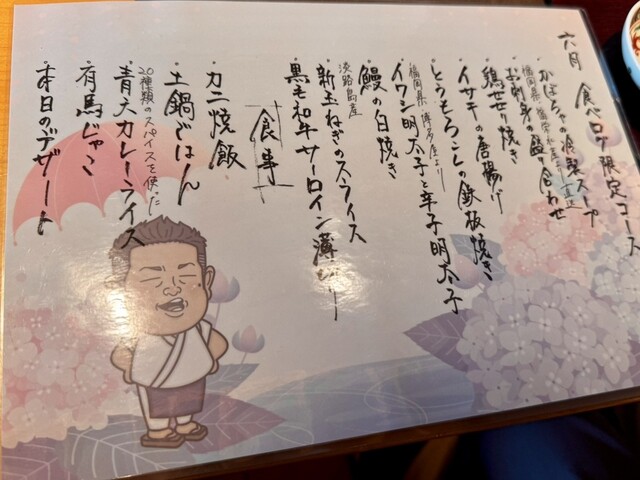 六月 食べログ限定コース
・かぼちゃの冷製スープ
福岡県
・お刺身の盛り合わせ
・鶏せせり焼き
・イサキの唐揚げ
・とうもろこしの鉄板焼き
福岡県 博多屋より
・イワシ明太子と辛子明太子
・鰻の白焼き
淡路島産
・新玉ねぎのスライス
・黒毛和牛サーロイン薄
食事
・カニ焼飯
・土鍋ごはん
20種類のスパイスを使った
・青天カレーライス
・有馬じゃこ
・本日のデザート